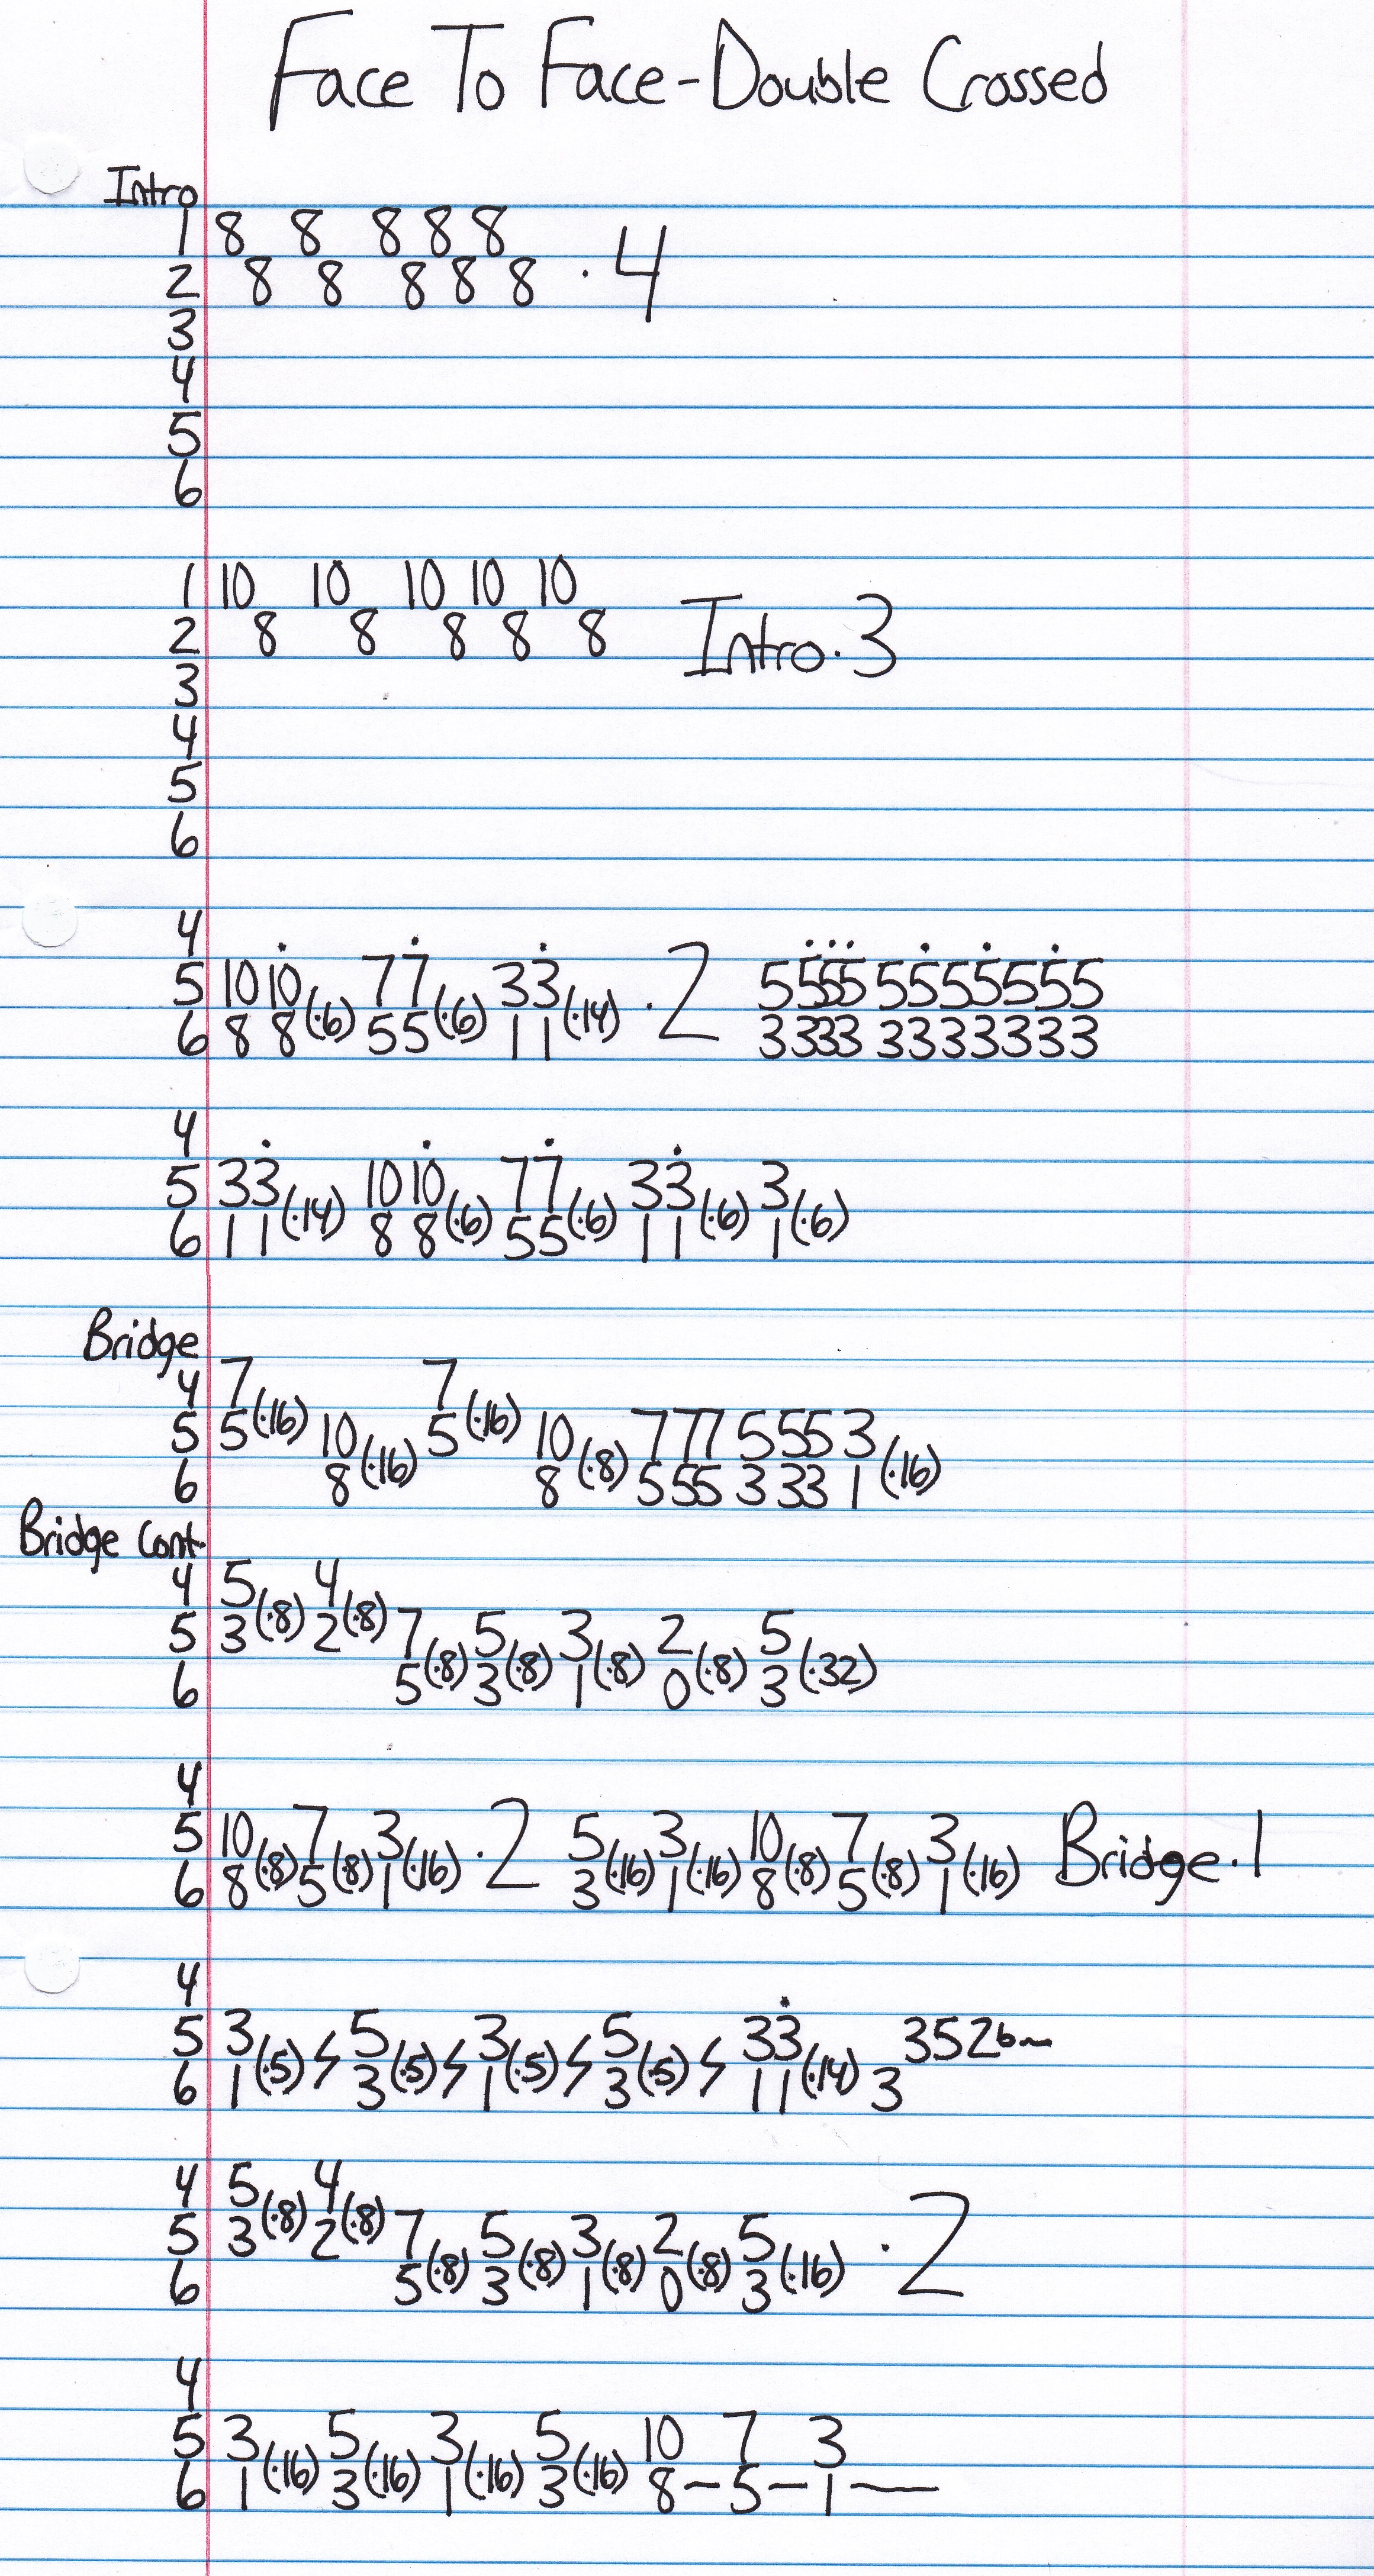 Face To Face-Double Crossed
Intro
1 8 8 8 8 8
2 8 8 8 8 8 ·4
3
4
5
6
1 10 10 10 10 10
2 8 8 8 8 8 Intro·3
3
4
5
6
4
5 10 10 (·6) 7 7 (·6) 3 3 (·14) ·2 5555 5555555
6 8 8 5 5 1 1 3333 3333333
4
5 3 3 (·14) 10 10 (·6) 7 7 (·6) 3 3 (·6) 3 (·6)
6 1 1 8 8 5 5 1 1 1
Bridge
4 7 (·16) 7 (·16)
5 5 10 (·16) 5 10 (·8) 777 555 3 (·16)
6 8 8 555 333 1
Bridge Cont.
4 5 (·8) 4 (·8)
5 3 2 7 (·8) 5 (·8) 3 (·8) 2 (·8) 5 (·32)
6 5 3 1 0 3
4
5 10 (·8) 7 (·8) 3 (·16) ·2 5 (·16) 3 (·16) 10 (·8) 7 (·8) 3 (·16) Bridge·1
6 8 5 1 3 1 8 5 1
4
5 3 (·5) 5 (·5) 3 (·5) 5 (·5) 3 3 (·14) 352b~
6 1 3 1 3 1 1 3
4 5 (·8) 4 (·8)
5 3 2 7 (·8) 5 (·8) 3 (·8) 2 (·8) 5 (·16) ·2
6 5 3 1 0 3
4
5 3 (·16) 5 (·16) 3 (·16) 5 (·16) 10 7 3
6 1 3 1 3 8 – 5 – 1 —